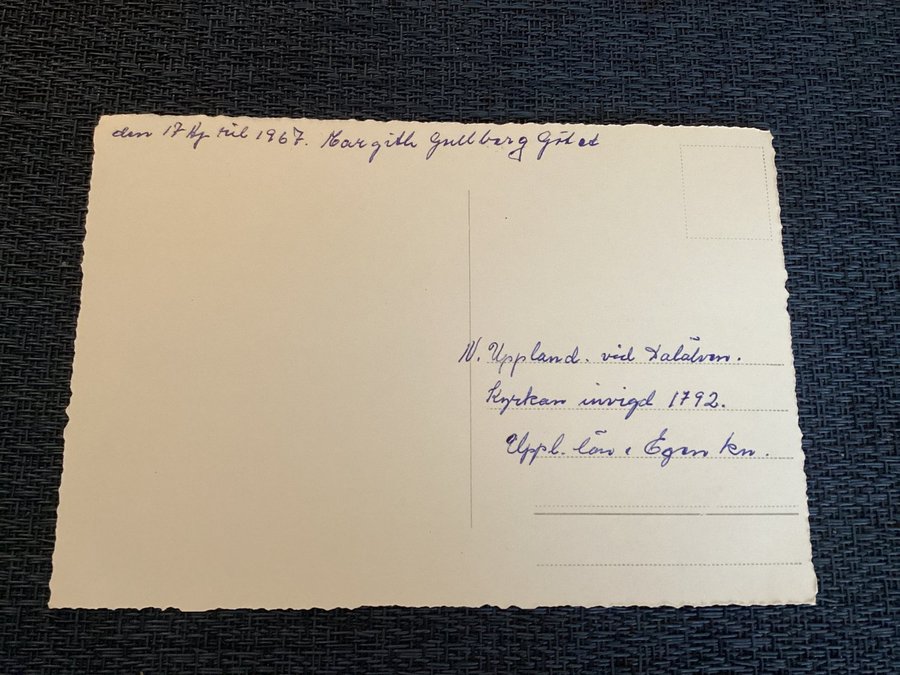 den 17 April 1967. Margith Gullberg
N. Uppland. vid Dalälven.
Kyrkan invigd 1792.
Uppl. län. Egen kn.